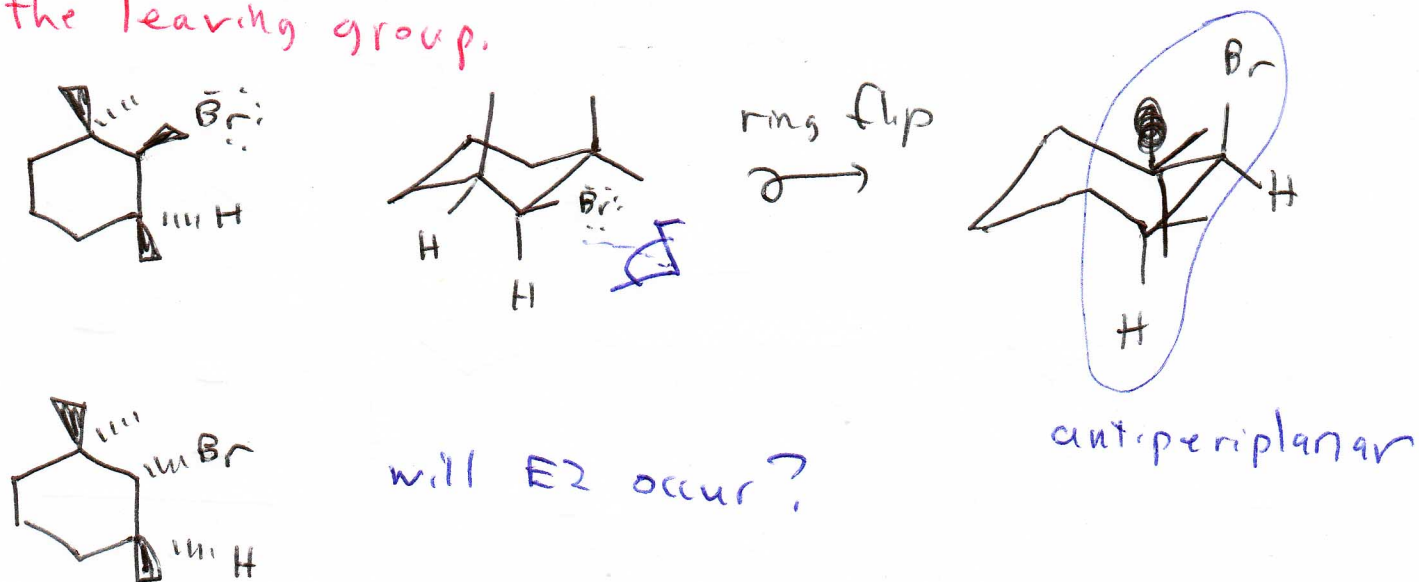 the leaving group.
Br
H
H
H
Br
ring flip
Br
H
H
antiperiplanar
Br
H
will E2 occur?